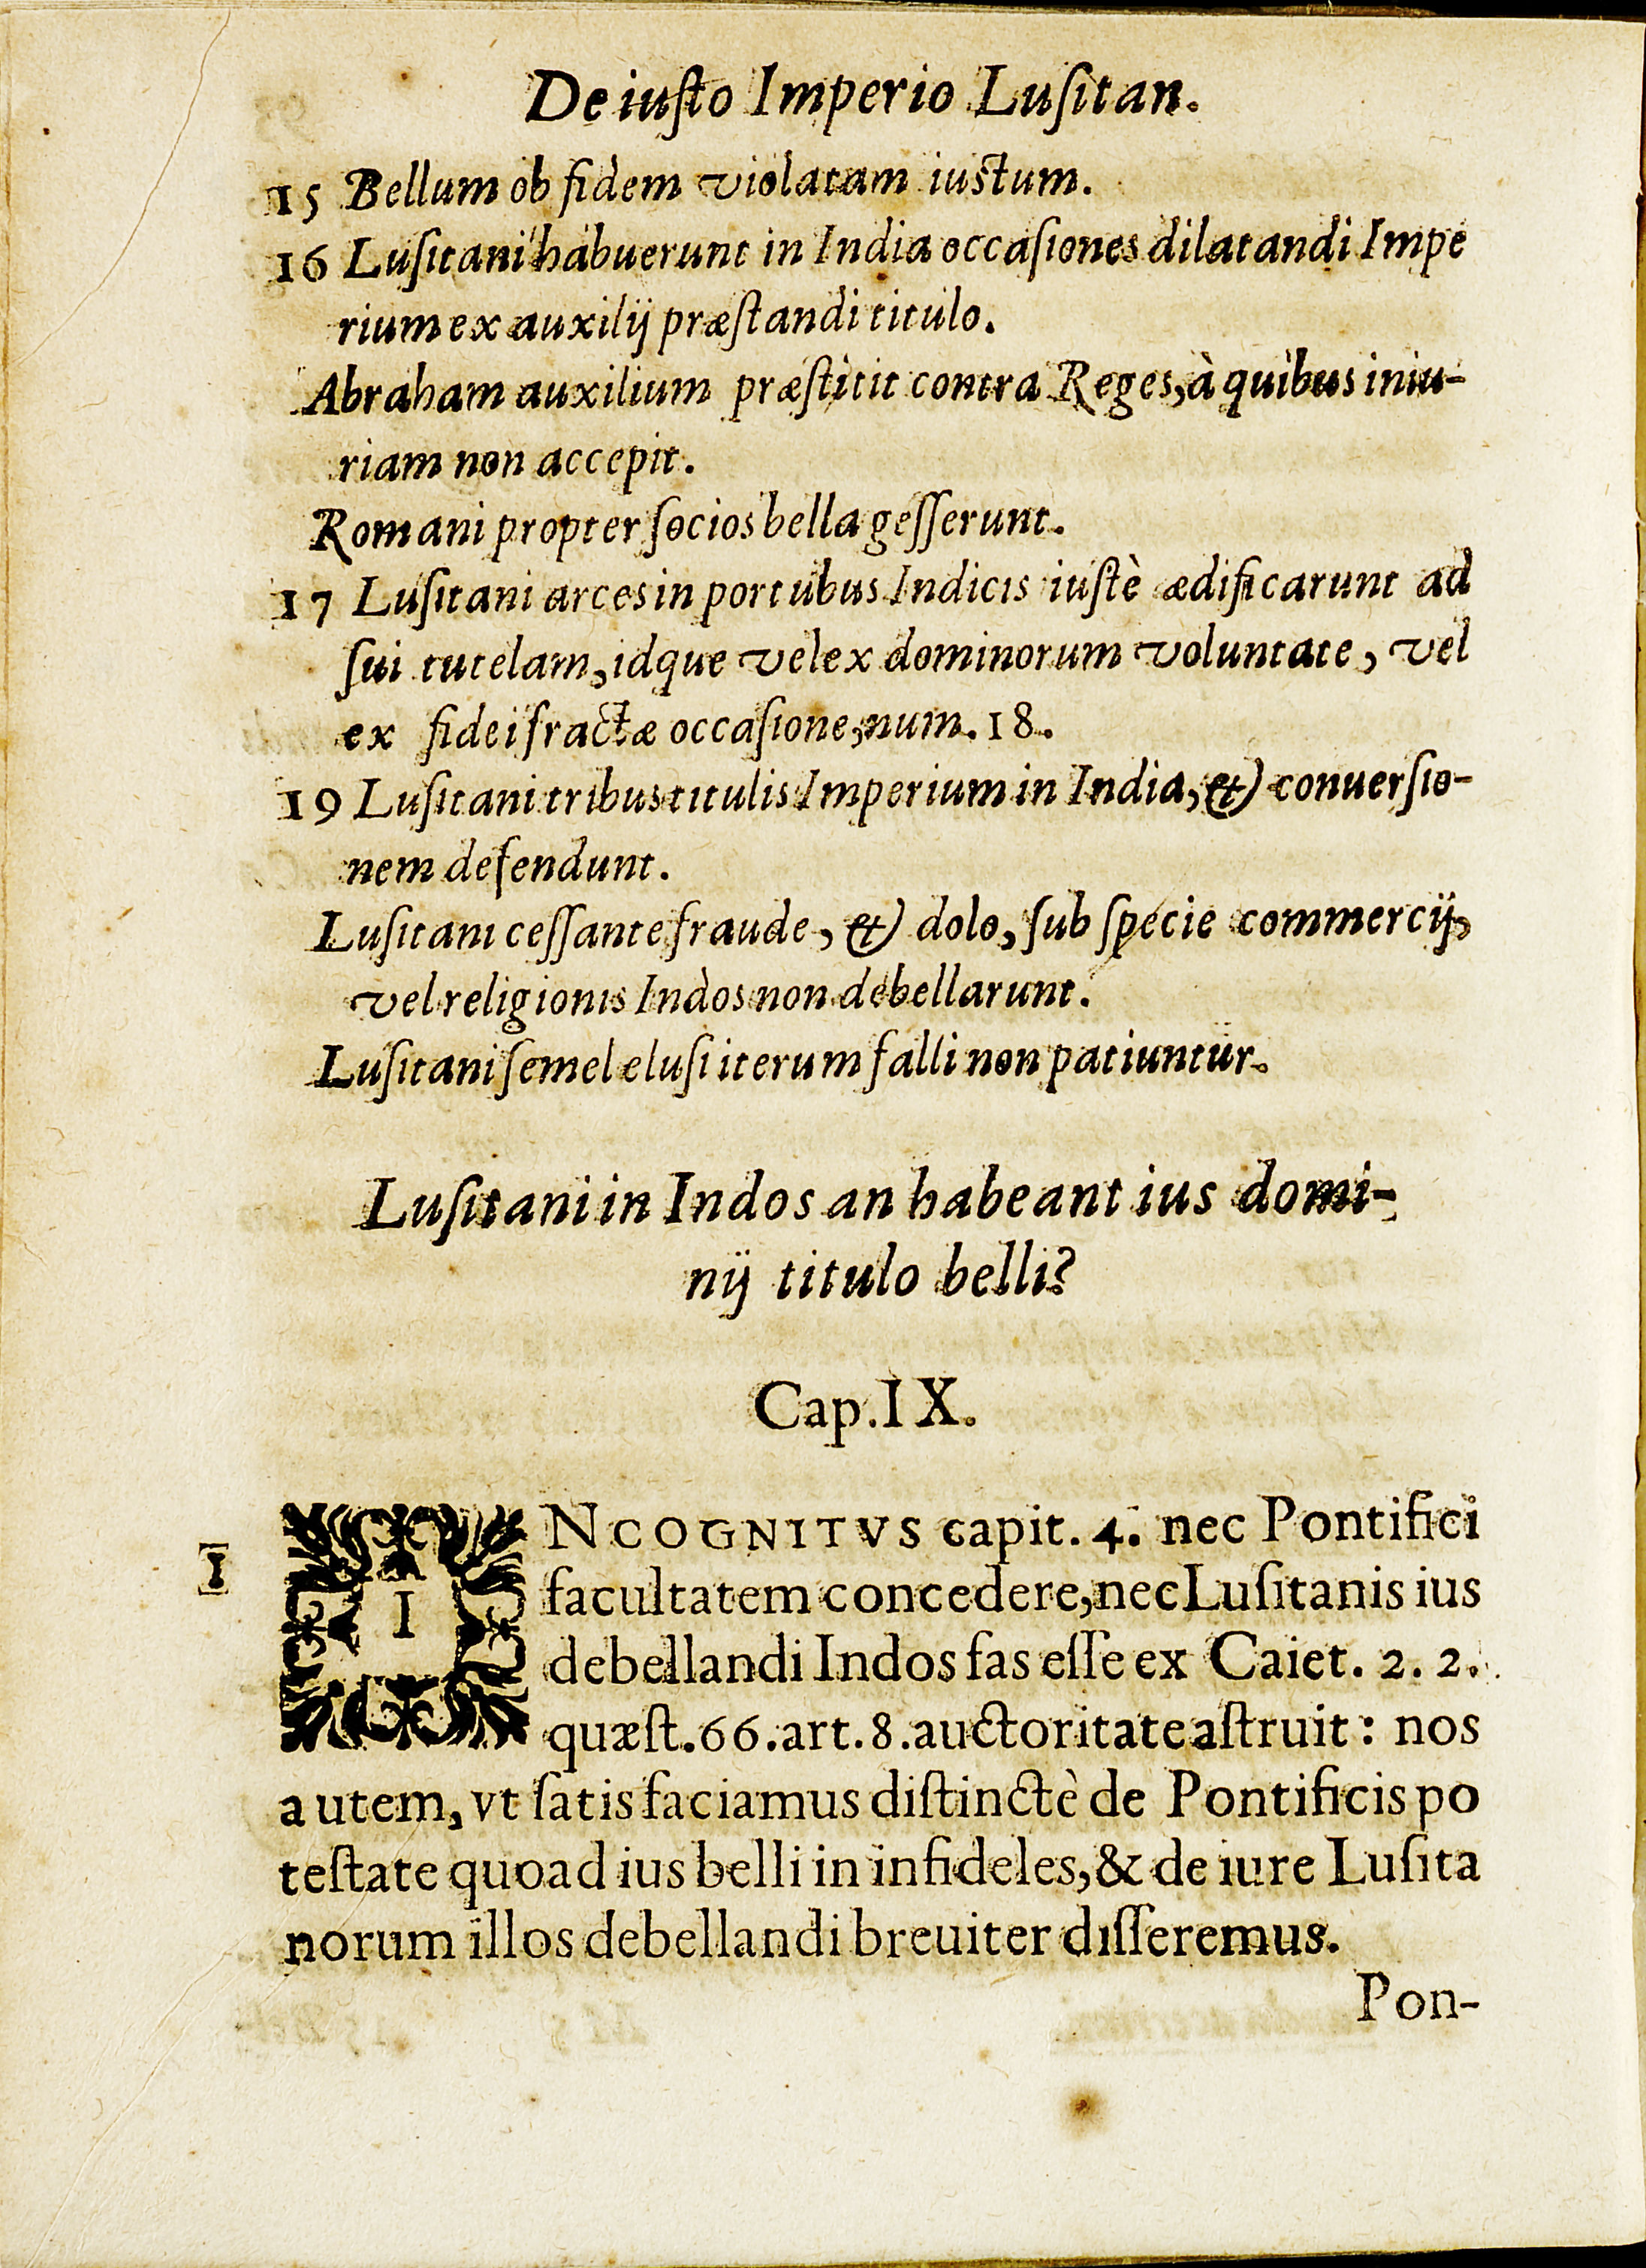 De iusto Imperio Lusitan.
15 Bellum ob fidem violatam iustum.
16 Lusitani habuerunt in India occasiones dilatandi Impe
rium ex auxilij præstandi titulo.
Abraham auxilium præstitit contra Reges, à quibus iniu-
riam non accepit.
Romani propter socios bella gesserunt.
17 Lusitani arces in portubus Indicis iustè ædificarunt ad
sui tutelam, idque vel ex dominorum voluntate, vel
ex fidei fractæ occasione, num. 18.
19 Lusitani tribus titulis Imperium in India, & conuersio-
nem defendunt.
Lusitani cessante fraude, & dolo, sub specie commercij,
vel religionis Indos non debellarunt.
Lusitani semel elusi iterum falli non patiuntur.
Lusitani in Indos an habeant ius domi-
nij titulo belli?
Cap. IX.
1 INCOGNITVS capit. 4. nec Pontifici
facultatem concedere, nec Lusitanis ius
debellandi Indos fas esse ex Caiet. 2. 2.
quæst. 66. art. 8. auctoritate astruit: nos
autem, vt satisfaciamus distinctè de Pontificis po
testate quoad ius belli in infideles, & de iure Lusita
norum illos debellandi breuiter disseremus.
Pon-